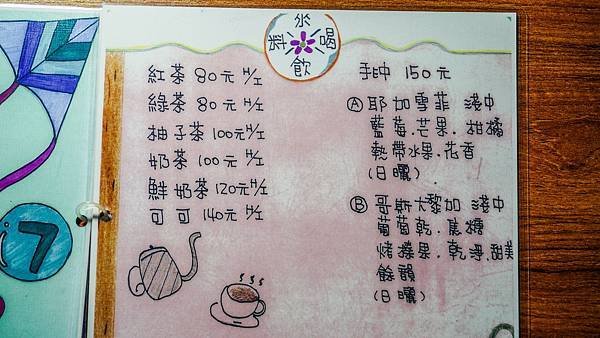 來
喝
飲
料
紅茶 80元 H/I
綠茶 80元 H/I
柚子茶 100元 H/I
奶茶 100元 H/I
鮮奶茶 120元 H/I
可可 140元 H/I
手沖 150元
Ⓐ 耶加雪菲 淺中
藍莓.芒果.柑橘
熱帶水果.花香
(日曬)
Ⓑ 哥斯大黎加 淺中
葡萄乾.焦糖
烤榛果.乾淨.甜美
餘韻
(日曬)
7